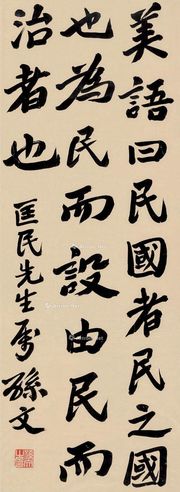 美語曰民國者民之國
也為民而設由民而
治者也
匡民先生屬 孫文